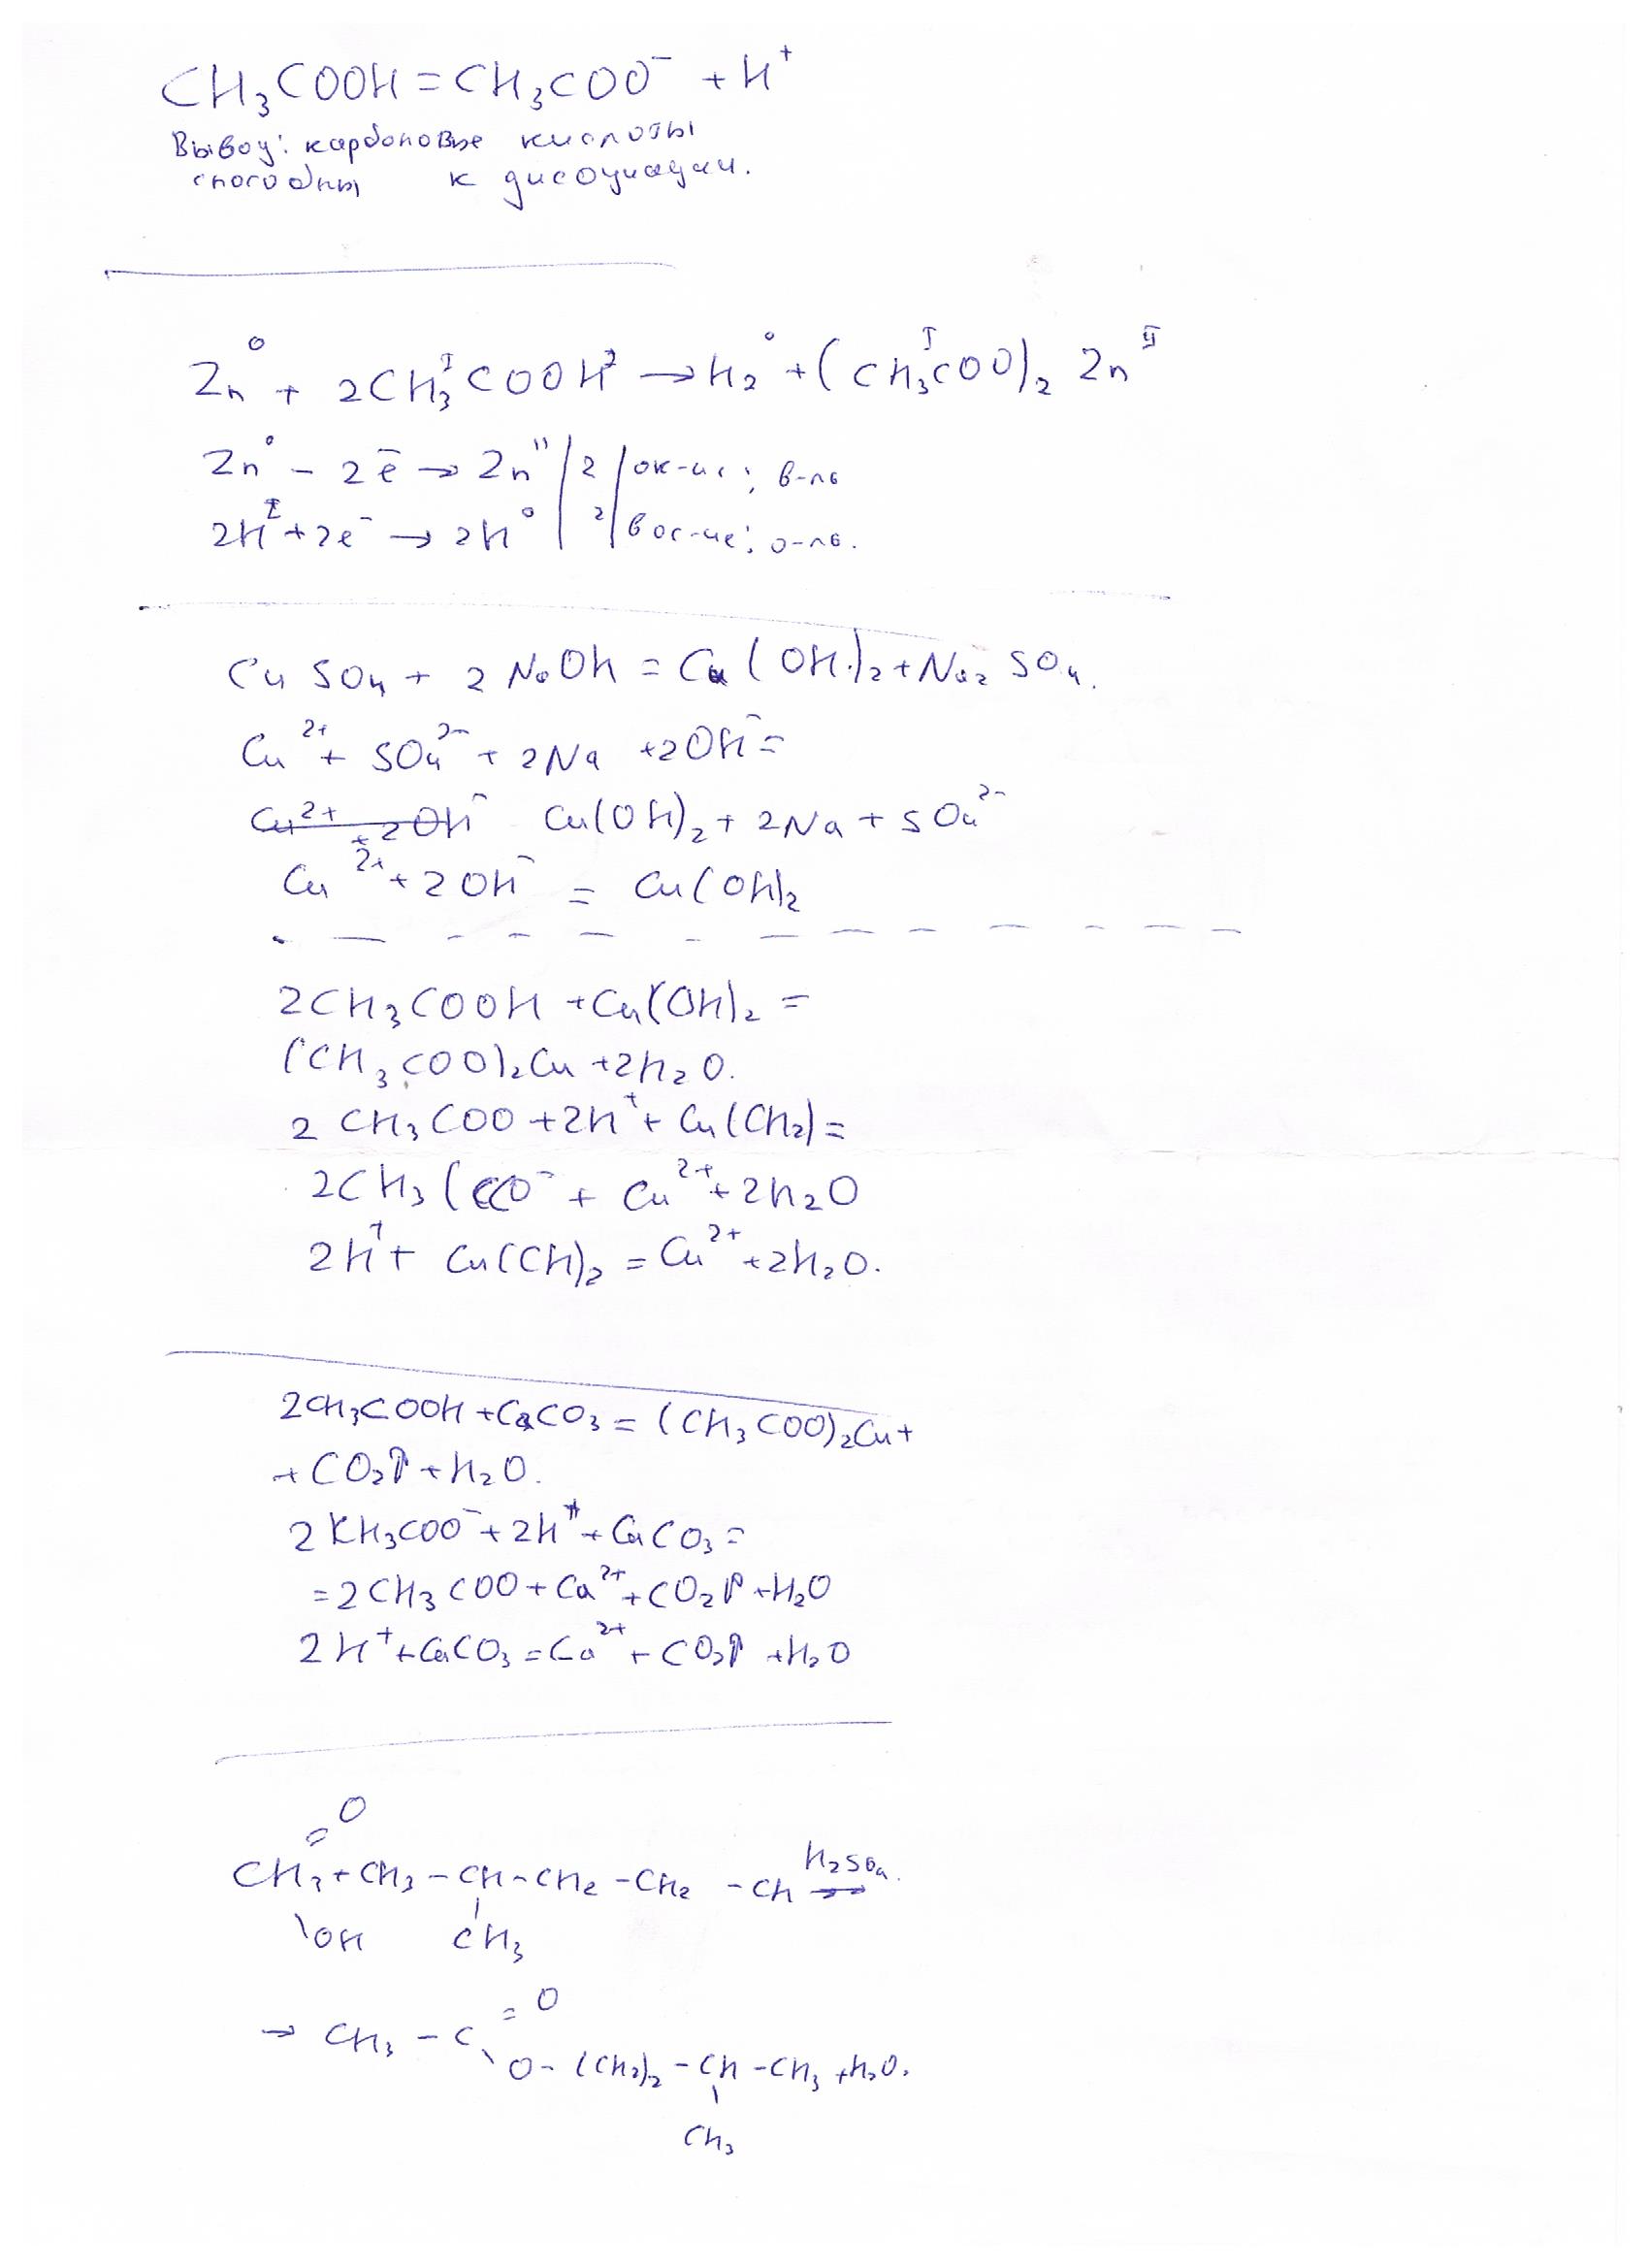 CH₃COOH = CH₃COO⁻ + H⁺
Вывод: карбоновые кислоты
способны к дисоциации.
Zn⁰ + 2CH₃ᴵCOOHᴵ → H₂⁰ + (CH₃ᴵCOO)₂ Znᴵᴵ
Zn⁰ - 2ē → Znᴵᴵ | 2 | ок-ие; в-ль
2Hᴵ + 2e⁻ → 2H⁰ | 2 | вос-ие; о-ль.
CuSO₄ + 2NaOH = Cu(OH)₂ + Na₂SO₄.
Cu²⁺ + SO₄²⁻ + 2Na + 2OH⁻ =
Cu²⁺ + 2OH⁻ Cu(OH)₂ + 2Na + SO₄²⁻
Cu²⁺ + 2OH⁻ = Cu(OH)₂
2CH₃COOH + Cu(OH)₂ =
(CH₃COO)₂Cu + 2H₂O.
2 CH₃COO + 2H⁺ + Cu(CH₂) =
2CH₃(COO⁻ + Cu²⁺ + 2H₂O
2H⁺ + Cu(CH)₂ = Cu²⁺ + 2H₂O.
2CH₃COOH + CaCO₃ = (CH₃COO)₂Cu +
+ CO₂↑ + H₂O.
2CH₃COO⁻ + 2H⁺ + CaCO₃ =
= 2CH₃COO + Ca²⁺ + CO₂↑ + H₂O
2H⁺ + CaCO₃ = Ca²⁺ + CO₂↑ + H₂O
=O
CH₃ + CH₃ - CH - CH₂ - CH₂ - CH H₂SO₄ →
\OH CH₃
=O
→ CH₃ - C
\O - (CH₂)₂ - CH - CH₃ + H₂O.
CH₃